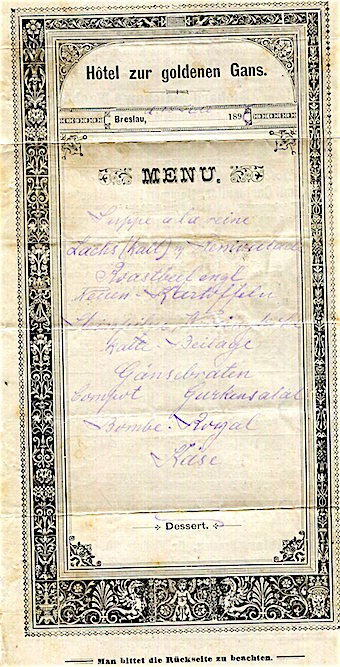 Hôtel zur goldenen Gans.
Breslau, 189
MENU.
Suppe a la reine
Lachs (kalt)
Roastbeef engl
neuen Kartoffeln
Kalte Beilage
Gänsebraten
Compot Gurkensalat
Bombe Royal
Käse
Dessert.
Man bittet die Rückseite zu beachten.